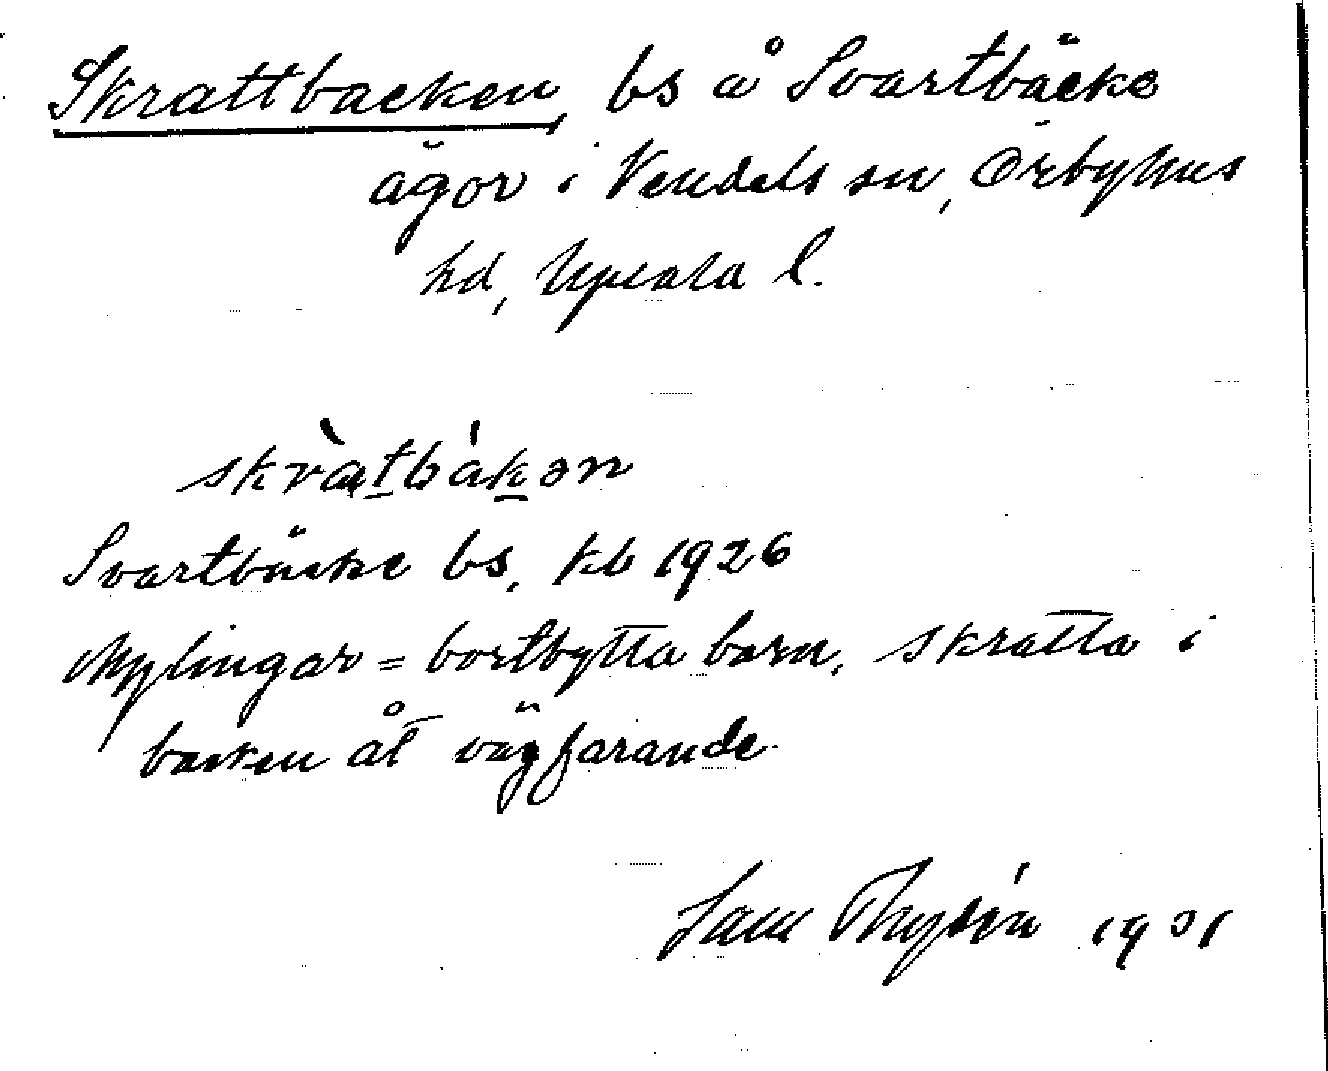 Skrattbacken, bs å Svartbäcke
ägor i Vendels sn, Örbyhus
hd, Upsala l.
skràtbákən
Svartbäcke bs, kb 1926
Mylingar = bortbytta barn, skratta i
backen åt vägfarande.
Sam Thysén 1931